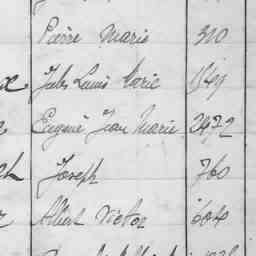 Pierre Marie 310
Jules Louis Marie
Eugène Jean Marie 2972
Joseph 760
Albert Victor 664